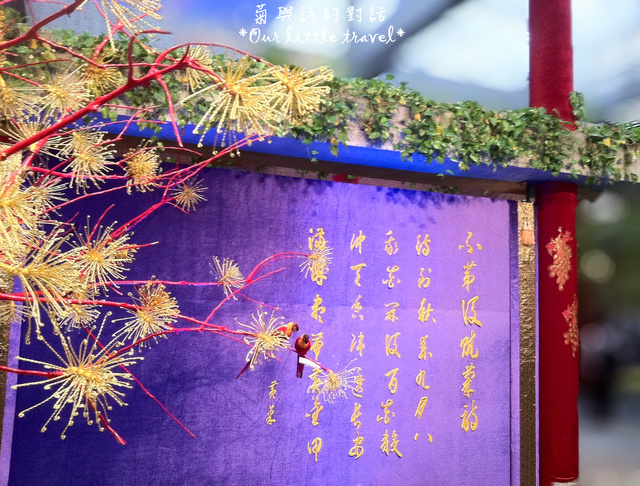 菊與詩的對話
*Our little travel*
不第後賦菊詩
待到秋來九月八
我花開後百花殺
沖天香陣透長安
滿城盡帶黃金甲
黃巢